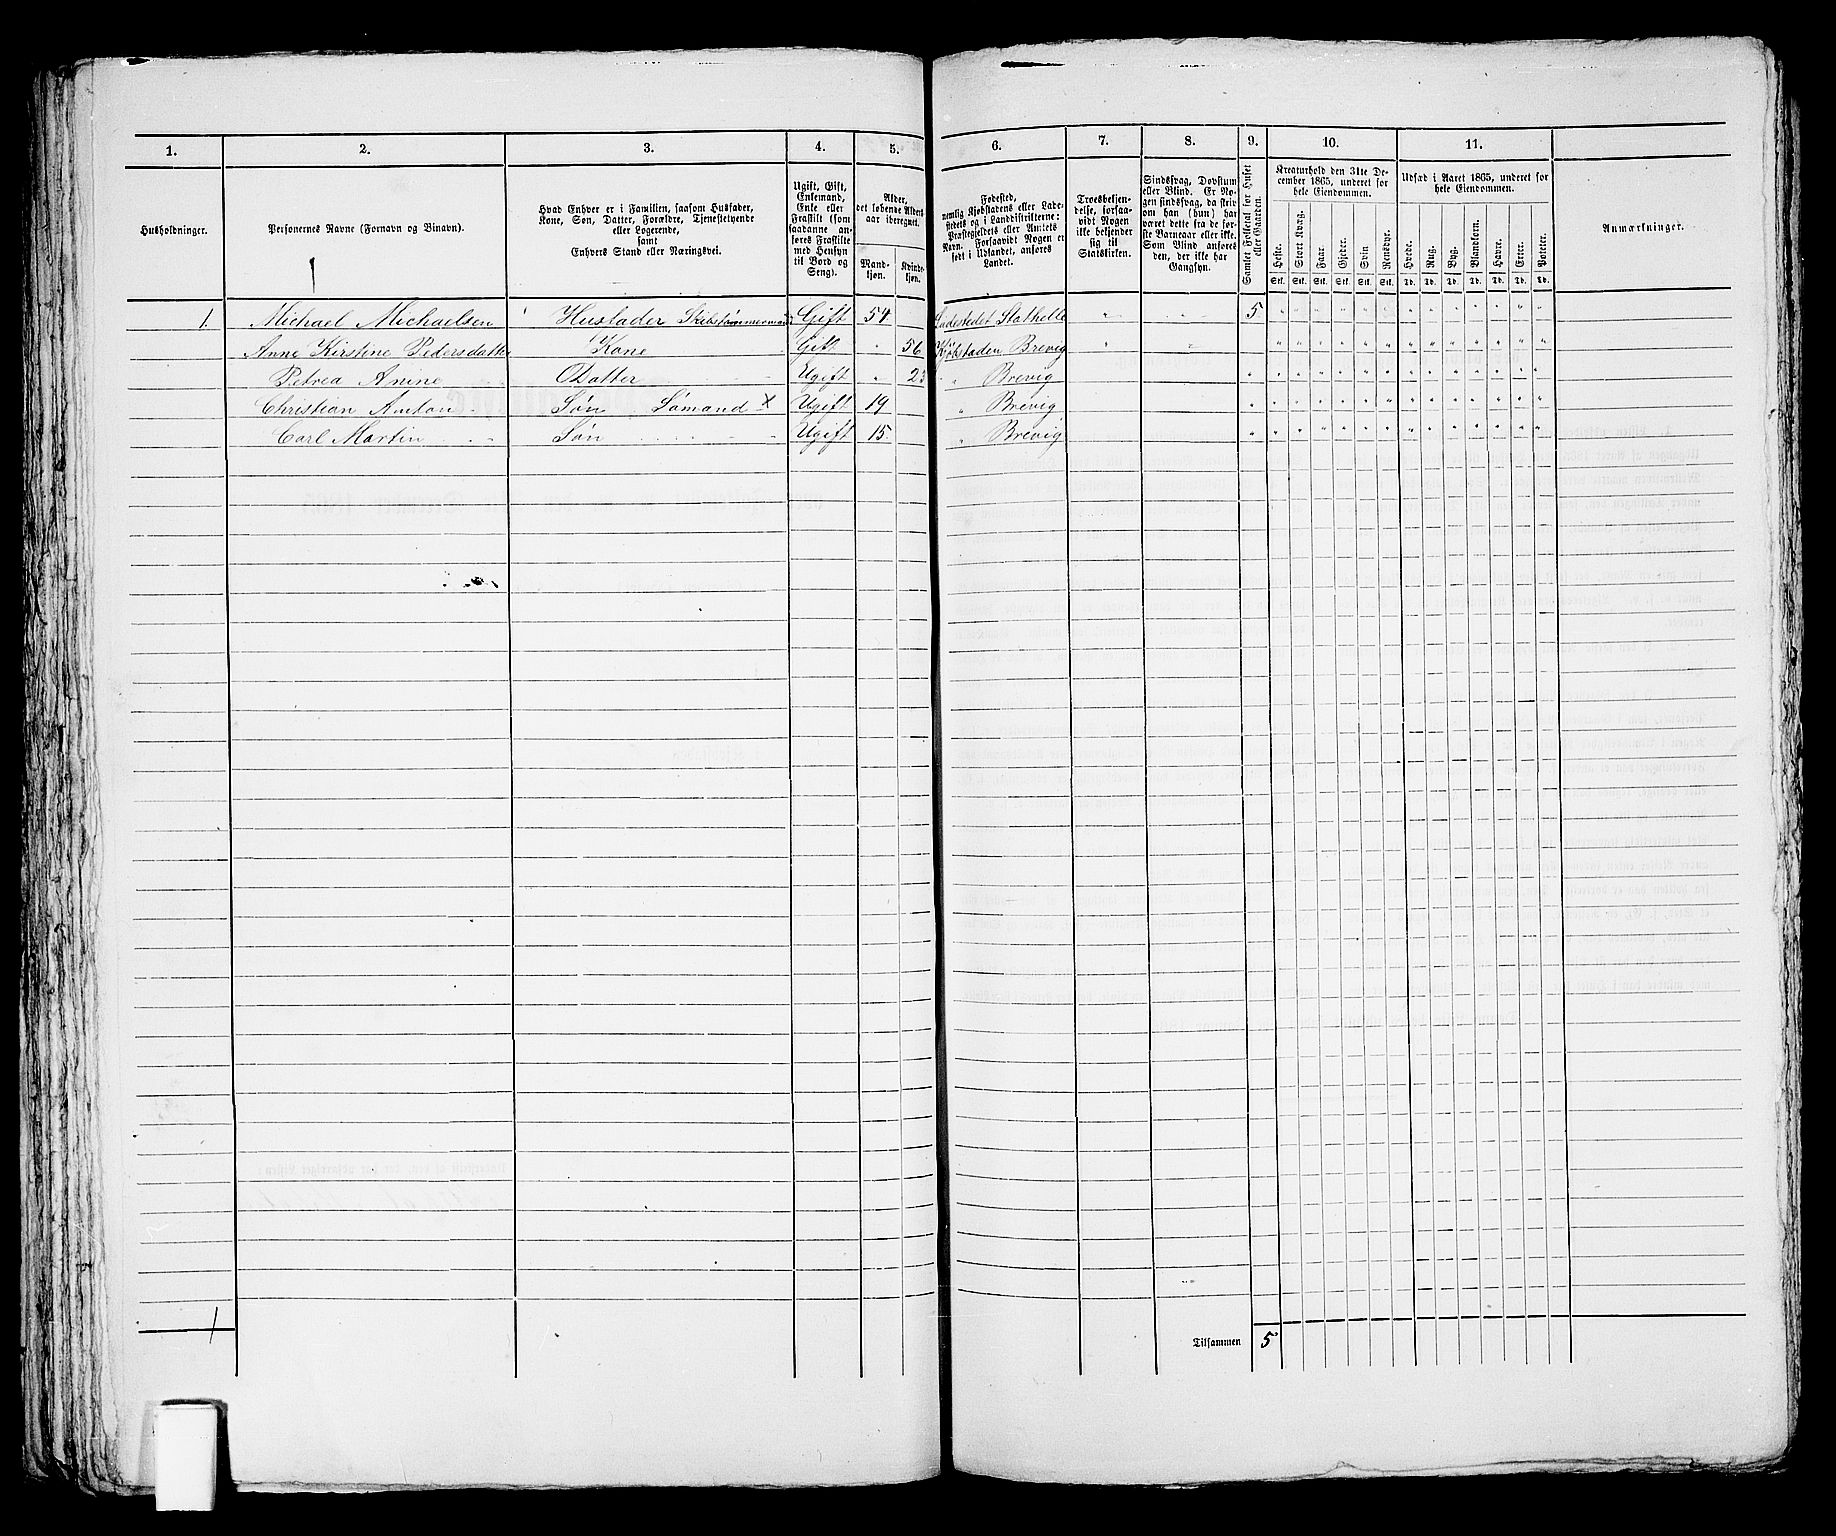 1. 2. 3. 4. 5. 6. 7. 8. 9. 10. 11.
Husholdninger.
Personernes Navne (Fornavn og Binavn).
Hvad Enhver er i Familien, saasom Husfader,
Kone, Søn, Datter, Forældre, Tjenestetyende
eller Logerende,
samt
Enhvers Stand eller Næringsvei.
Ugift, Gift,
Enkemand,
Enke eller
Fraskilt (som
saadanne an-
føres Fraskilte
med Hensyn
til Bord og
Seng).
Alder,
det løbende Alders-
aar iberegnet.
Mand-
kjøn.
Kvinde-
kjøn.
Fødested,
nemlig Kjøbstadens eller Lade-
stedets og i Landdistrikterne:
Præstegjeldets eller Amtets
Navn. Forsaavidt Nogen er
født i Udlandet, anføres
Landet.
Troesbekjen-
delse, forsaa-
vidt Nogen
ikke bekjender
sig til
Statskirken.
Sindssvag, Døvstum
eller Blind. Er No-
gen sindssvag, da skriv
om han (hun) har
været dette fra de før-
ste Barneaar eller ikke.
Som Blind anføres
den, der ikke har
Gangsyn.
Samlet Folketal for Huset
eller Gaarden.
Kreaturhold den 31te De-
cember 1865, underet for
hele Eiendommen.
Heste. Stort Kvæg. Faar. Gjeder. Svin Rensdyr.
Stk. Stk. Stk. Stk. Stk. Stk.
Udsæd i Aaret 1865, underet for
hele Eiendommen.
Hvede. Rug. Byg. Blandkorn. Havre. Erter. Poteter.
Td. Td. Td. Td. Td. Td. Td.
Anmærkninger.
1. Michael Michaelsen Husfader Skibstømmermand Gift 54 Ladestedet Stathelle " " 5 " " " " " " " " " " " " "
Anne Kirstine Pedersdatter Kone Gift " 56 Kjøbstaden Brevig " " " " " " " " " " " " " " "
Petrea Anine Datter Ugift " 23 " Brevig " " " " " " " " " " " " " "
Christian Anton Søn Sømand x Ugift 19 " Brevig " " " " " " " " " " " " " "
Carl Martin Søn Ugift 15 " Brevig " " " " " " " " " " " " " "
1
Tilsammen 5